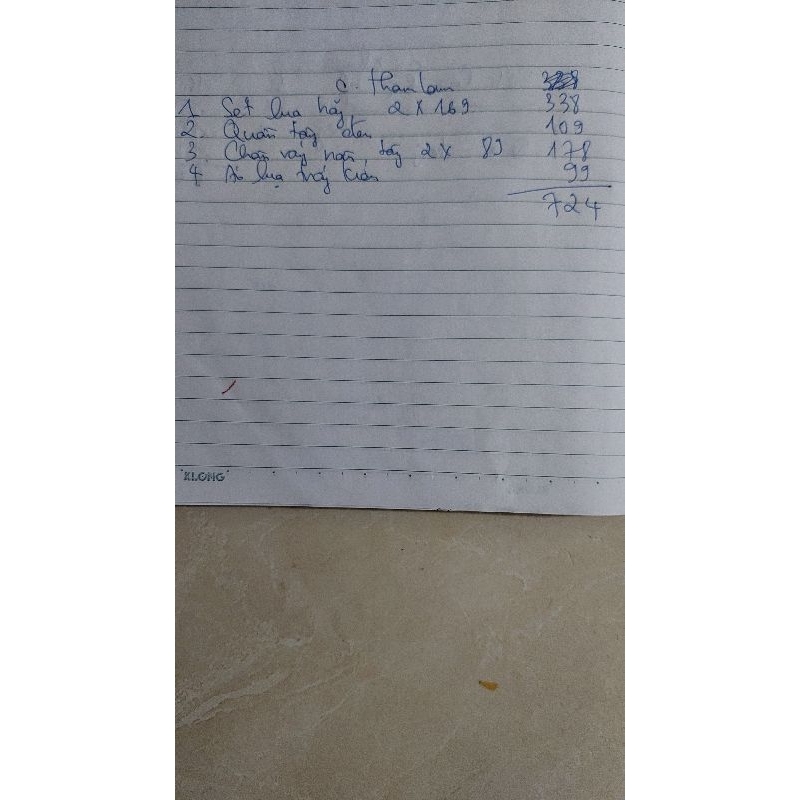 c. thanh lam
1 Set lụa trắng 2 x 169 338
2. Quần tây đen 109
3. Chân váy ngắn, tây 2 x 89 178
4 Áo lụa trắng 99
724
KLONG